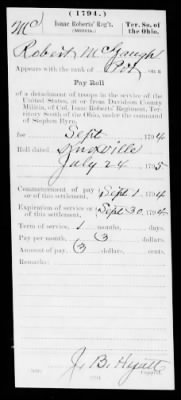 (1794.)
Mc Isaac Roberts' Reg't. Ter. So. of
(MILITIA.) the Ohio.
Robert McGaugh
Appears with the rank of Pvt on a
Pay Roll
of a detachment of troops in the service of the
United States, at or from Davidson County
Militia, of Col. Isaac Roberts' Regiment,
Territory South of the Ohio, under the command
of Stephen Byrn,
for Sept, 1794
Roll dated Knoxville
July 24, 1795
Commencement of pay or of this settlement, Sept 1, 1794
Expiration of service or of this settlement, Sept 30, 1794
Term of service, 1 months, days.
Pay per month, 3 dollars.
Amount of pay, 3 dollars, cents.
Remarks:
J. B. Hyatt
Copyist.